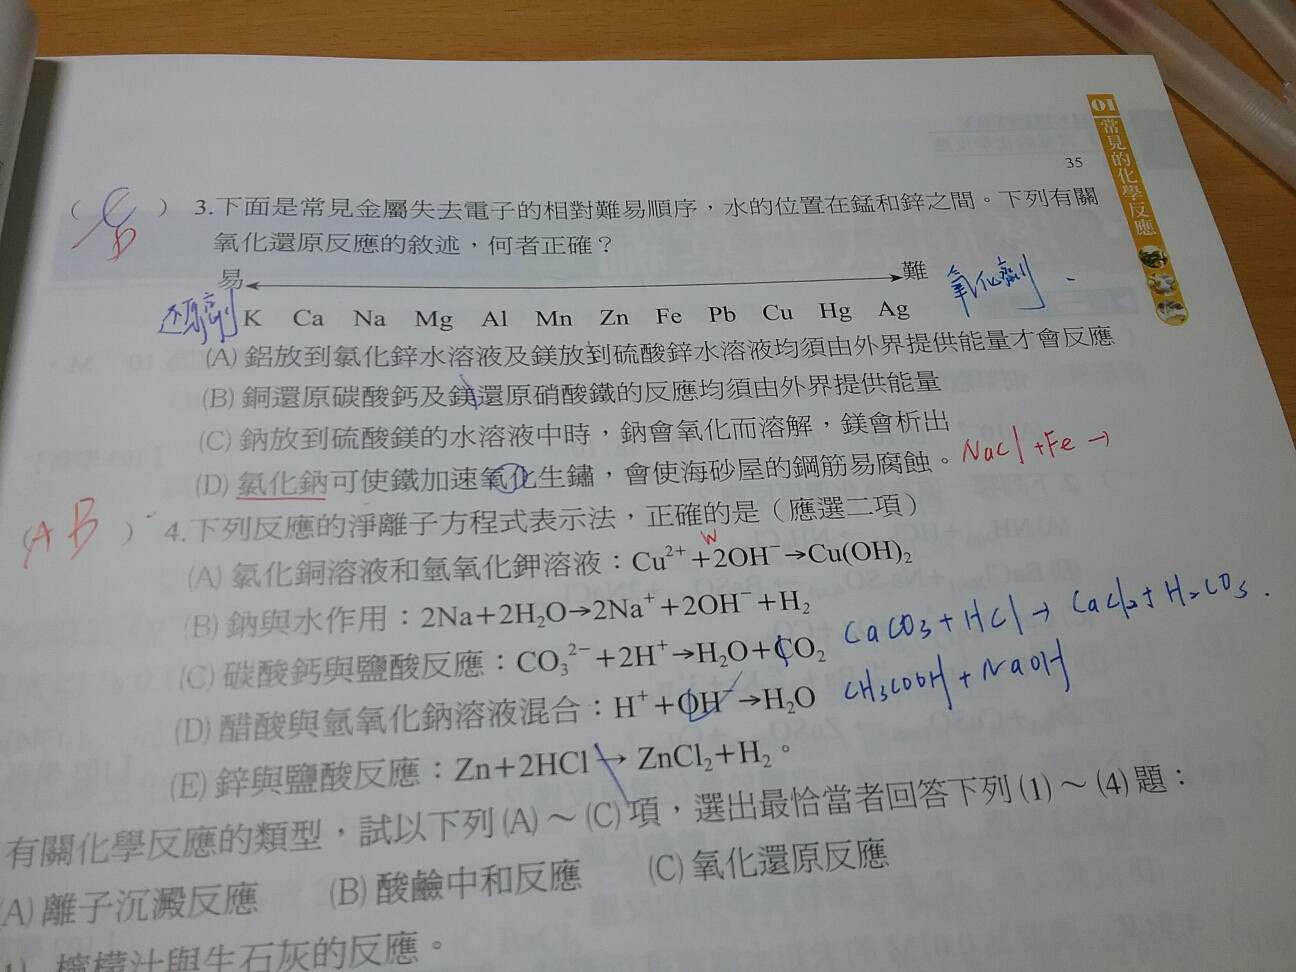 01 常見的化學反應
35
( C D ) 3.下面是常見金屬失去電子的相對難易順序，水的位置在錳和鋅之間。下列有關
氧化還原反應的敘述，何者正確？
易 難 氧化劑
還原劑 K Ca Na Mg Al Mn Zn Fe Pb Cu Hg Ag
(A) 鋁放到氯化鋅水溶液及鎂放到硫酸鋅水溶液均須由外界提供能量才會反應
(B) 銅還原碳酸鈣及鎂還原硝酸鐵的反應均須由外界提供能量
(C) 鈉放到硫酸鎂的水溶液中時，鈉會氧化而溶解，鎂會析出
(D) 氯化鈉可使鐵加速氧化生鏽，會使海砂屋的鋼筋易腐蝕。 NaCl + Fe →
( AB ) 4.下列反應的淨離子方程式表示法，正確的是（應選二項）
(A) 氯化銅溶液和氫氧化鉀溶液：Cu²⁺+2OH⁻→Cu(OH)₂
(B) 鈉與水作用：2Na+2H₂O→2Na⁺+2OH⁻+H₂
(C) 碳酸鈣與鹽酸反應：CO₃²⁻+2H⁺→H₂O+CO₂ CaCO₃ + HCl → CaCl₂ + H₂CO₃.
(D) 醋酸與氫氧化鈉溶液混合：H⁺+OH⁻→H₂O CH₃COOH + NaOH
(E) 鋅與鹽酸反應：Zn+2HCl → ZnCl₂+H₂。
有關化學反應的類型，試以下列(A)～(C)項，選出最恰當者回答下列(1)～(4)題：
(A) 離子沉澱反應 (B) 酸鹼中和反應 (C) 氧化還原反應
檸檬汁與生石灰的反應。